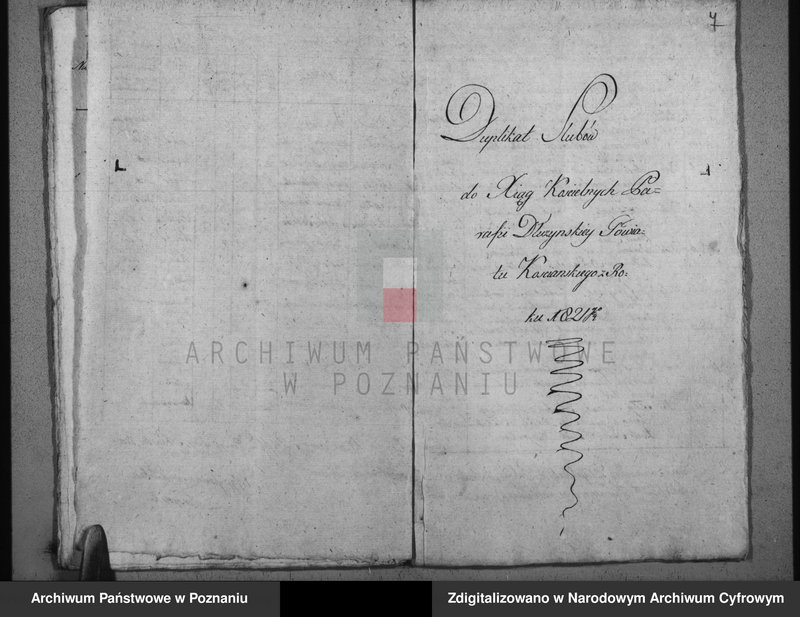 7
Duplikat Slubów
do Xiąg Koscielnych Pa=
rafii Dłużynskiey Powia-
tu Koscianskiego z Ro-
ku 1821
ARCHIWUM PAŃSTWOWE
W POZNANIU
Archiwum Państwowe w Poznaniu
Zdigitalizowano w Narodowym Archiwum Cyfrowym